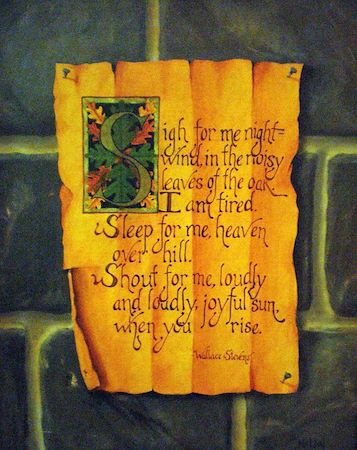 Sigh for me night=
wind, in the noisy
leaves of the oak.
I am tired.
Sleep for me, heaven
over hill.
Shout for me, loudly
and loudly, joyful sun,
when you rise.
Wallace Stevens